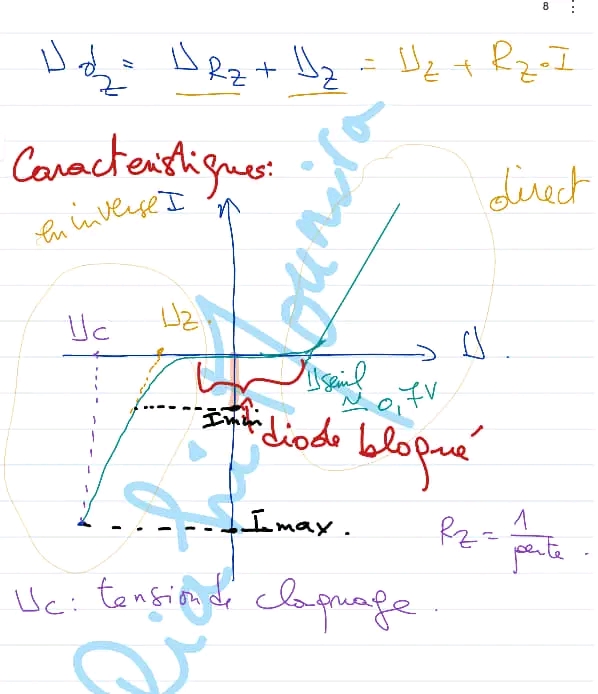 8
U dz = U Rz + Uz = Uz + Rz . I
Caractéristiques:
en inverse
I
direct
Uc
Uz
U
Useuil
≈ 0,7V
Imin
diode bloqué
Imax.
Rz = 1/pente.
Uc: tension de claquage.